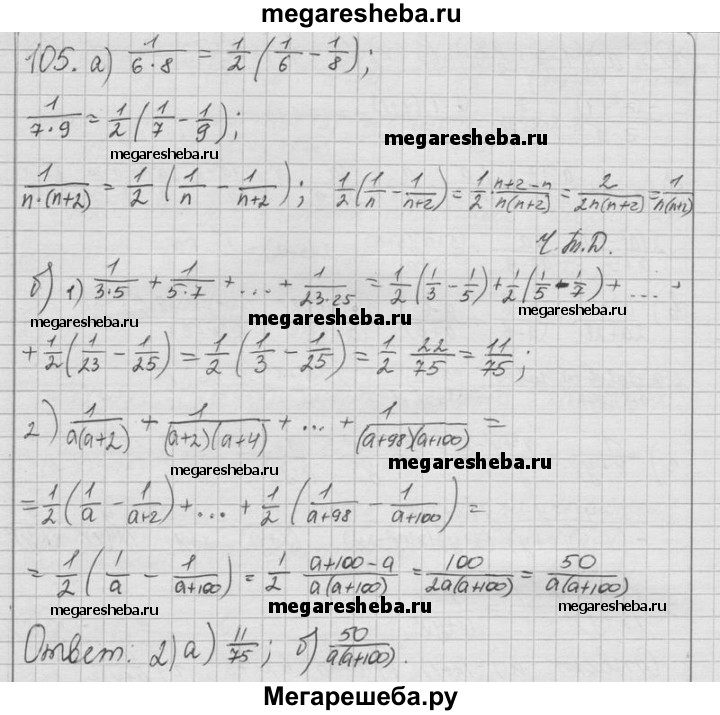 megaresheba.ru
105. а) 1/(6·8) = 1/2 (1/6 − 1/8);
1/(7·9) = 1/2 (1/7 − 1/9);
megaresheba.ru
megaresheba.ru
1/(n·(n+2)) = 1/2 (1/n − 1/(n+2)); 1/2 (1/n − 1/(n+2)) = 1/2 · (n+2−n)/(n(n+2)) = 2/(2n(n+2)) = 1/(n(n+2))
Ч.т.д.
б) 1) 1/(3·5) + 1/(5·7) + ... + 1/(23·25) = 1/2 (1/3 − 1/5) + 1/2 (1/5 − 1/7) + ... +
megaresheba.ru
megaresheba.ru
+ 1/2 (1/23 − 1/25) = 1/2 (1/3 − 1/25) = 1/2 22/75 = 11/75;
2) 1/(a(a+2)) + 1/((a+2)(a+4)) + ... + 1/((a+98)(a+100)) =
megaresheba.ru
megaresheba.ru
= 1/2 (1/a − 1/(a+2)) + ... + 1/2 (1/(a+98) − 1/(a+100)) =
= 1/2 (1/a − 1/(a+100)) = 1/2 (a+100−a)/(a(a+100)) = 100/(2a(a+100)) = 50/(a(a+100))
megaresheba.ru
megaresheba.ru
megaresheba.ru
Ответ: 2) а) 11/75; б) 50/(a(a+100)).
Мегарешеба.ру